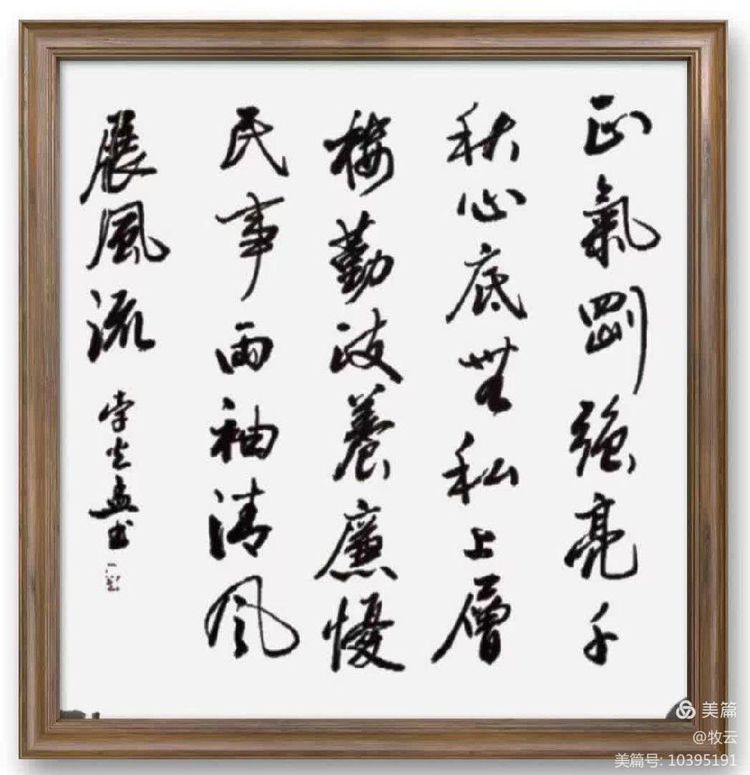 正氣剛強亮千
秋心底無私上層
樓勤政養廉懮
民事两袖清风
展風流
李孟书
美篇
@牧云
美篇号: 10395191